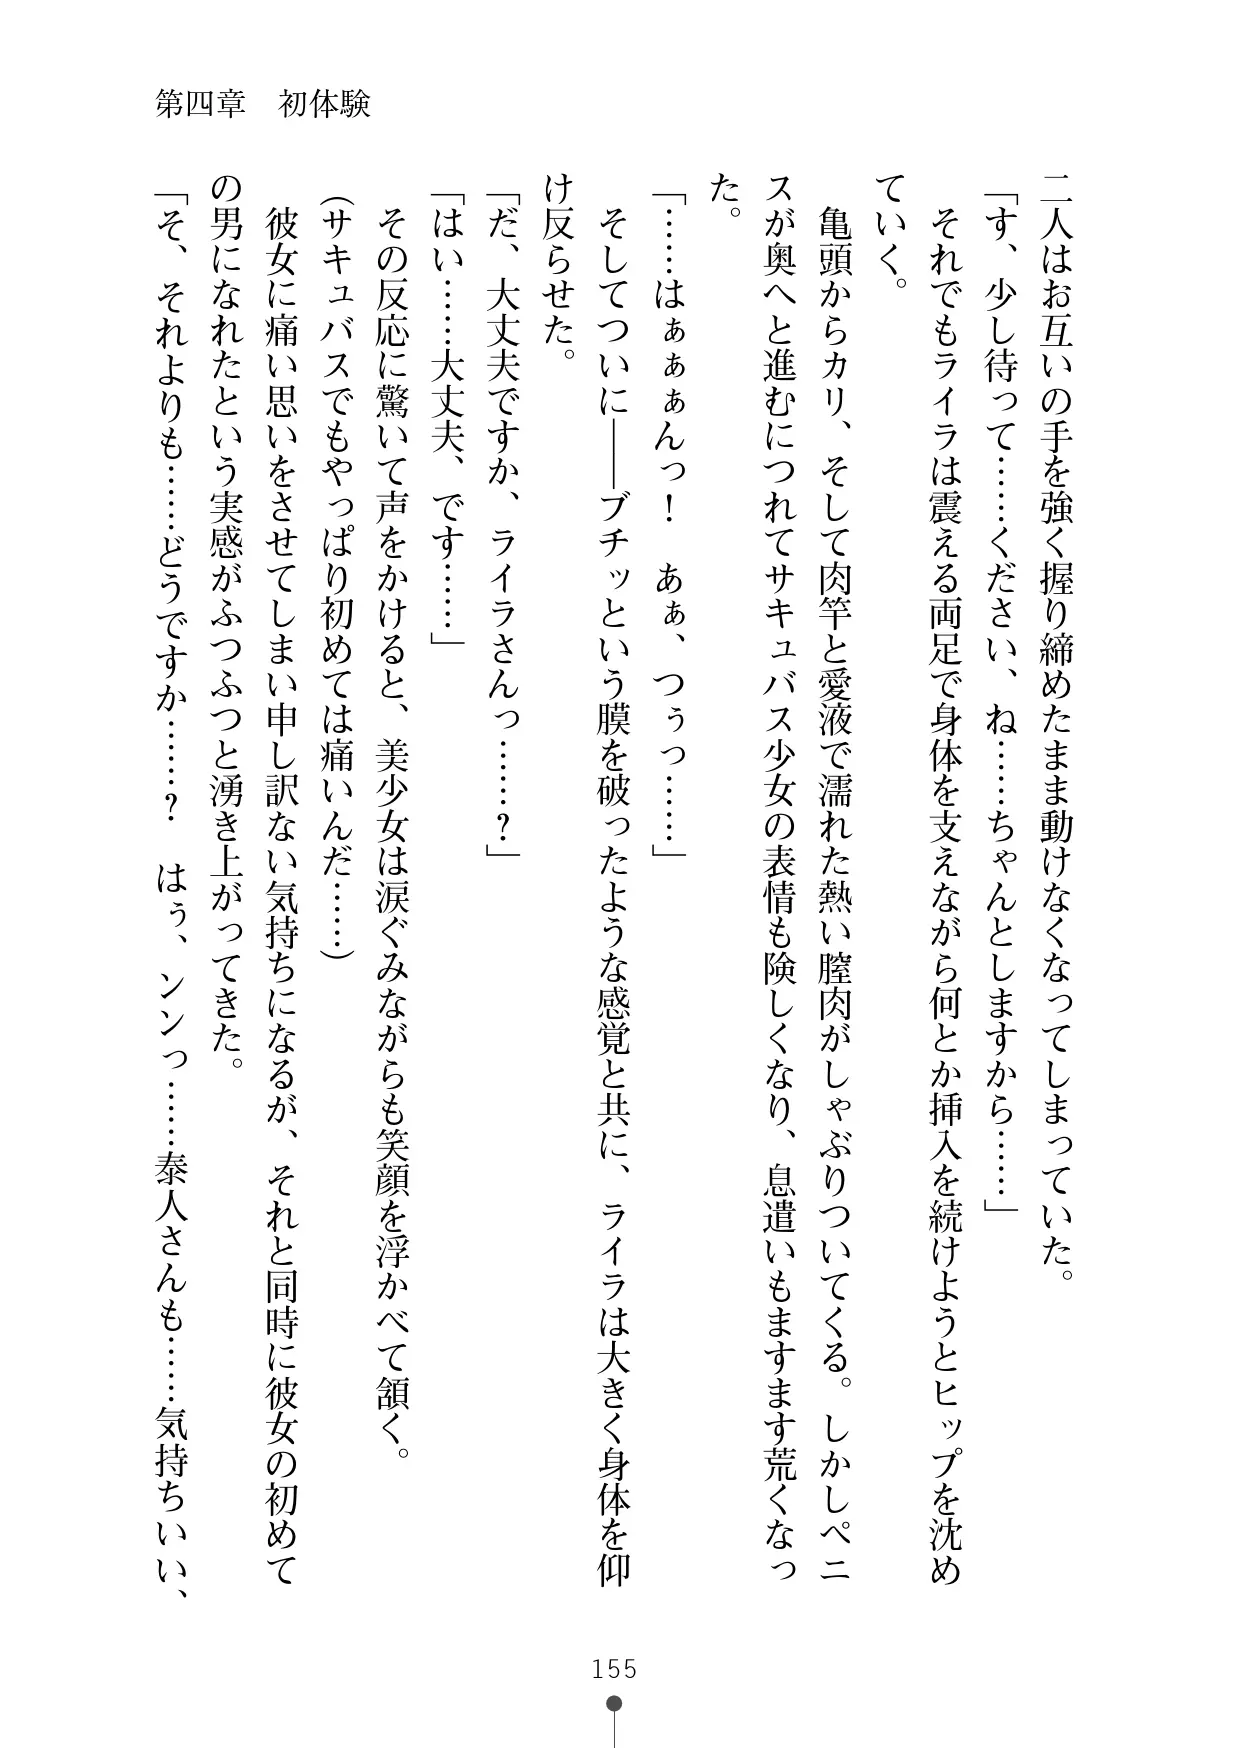 第四章　初体験
二人はお互いの手を強く握り締めたまま動けなくなってしまっていた。
「す、少し待って……ください、ね……ちゃんとしますから……」
それでもライラは震える両足で身体を支えながら何とか挿入を続けようとヒップを沈め
ていく。
亀頭からカリ、そして肉竿と愛液で濡れた熱い膣肉がしゃぶりついてくる。しかしペニ
スが奥へと進むにつれてサキュバス少女の表情も険しくなり、息遣いもますます荒くなっ
た。
「……はぁぁぁんっ！　あぁ、つぅっ……」
そしてついに――ブチッという膜を破ったような感覚と共に、ライラは大きく身体を仰
け反らせた。
「だ、大丈夫ですか、ライラさんっ……？」
「はい……大丈夫、です……」
その反応に驚いて声をかけると、美少女は涙ぐみながらも笑顔を浮かべて頷く。
（サキュバスでもやっぱり初めては痛いんだ……）
彼女に痛い思いをさせてしまい申し訳ない気持ちになるが、それと同時に彼女の初めて
の男になれたという実感がふつふつと湧き上がってきた。
「そ、それよりも……どうですか……？　はぅ、ンンっ……泰人さんも……気持ちいい、
155